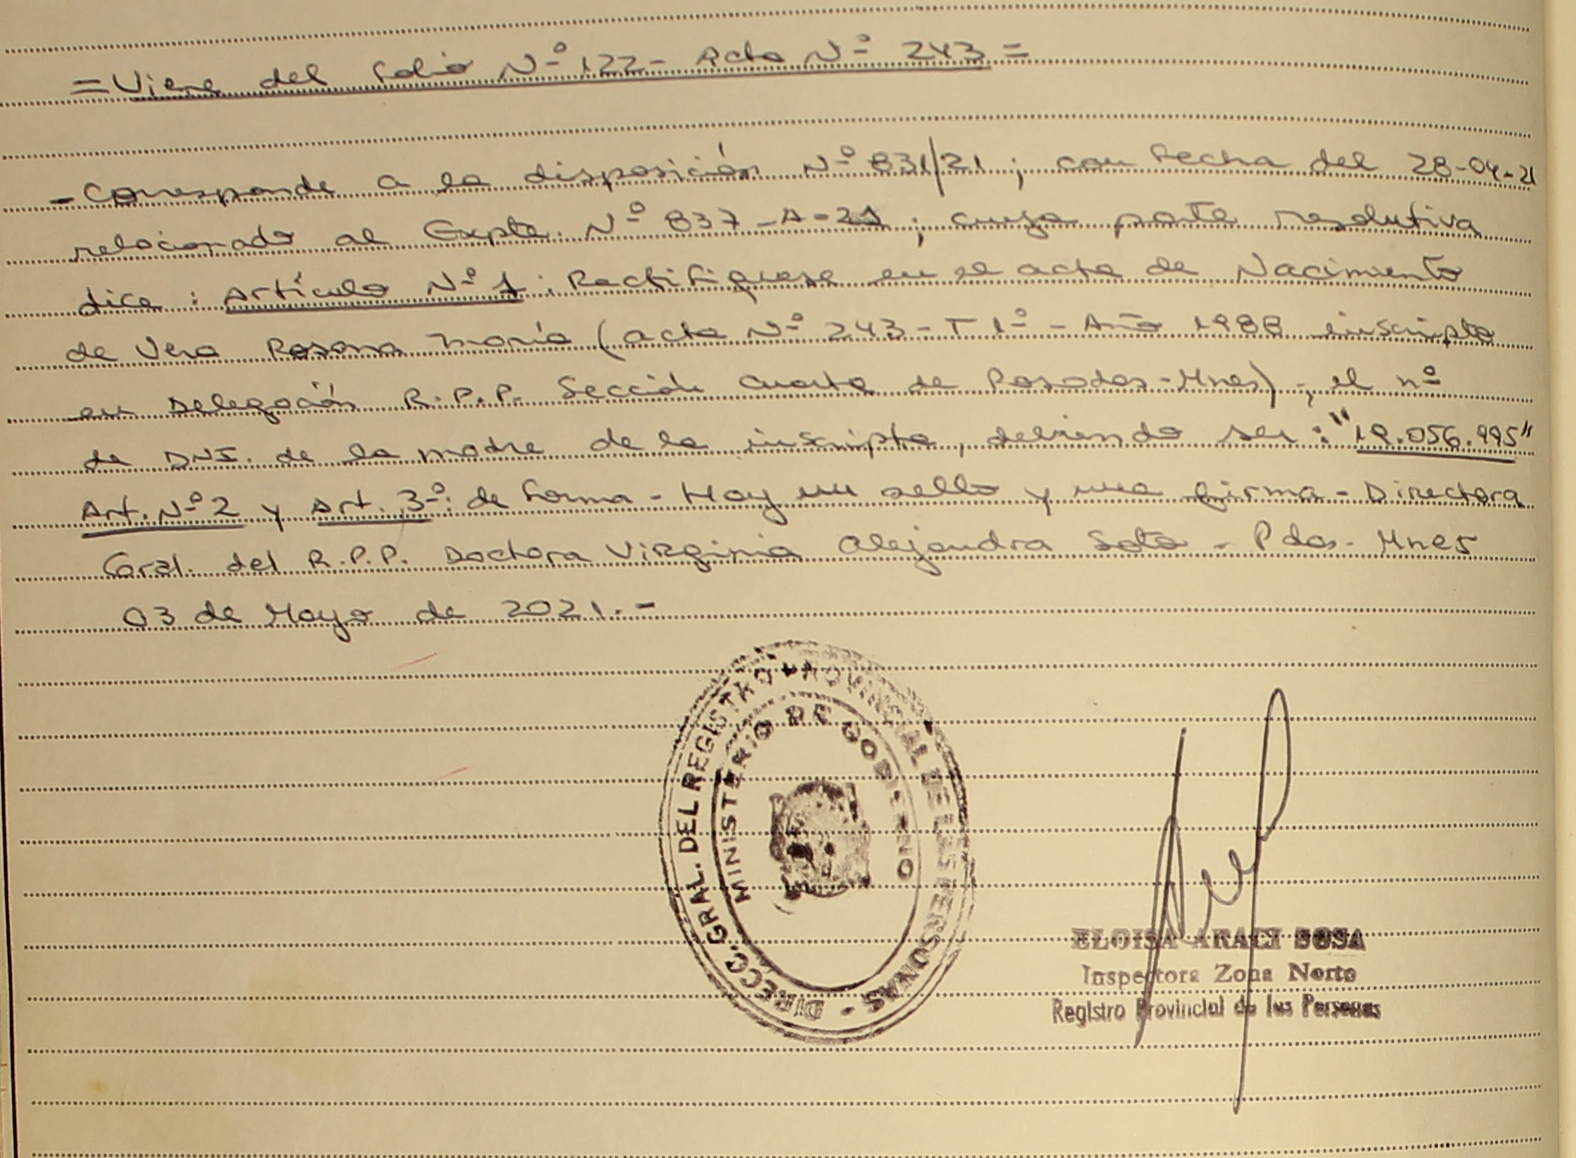 = Viene del folio Nº 122 - Acta Nº 243 =
- Corresponde a la disposición Nº 831/21; con fecha del 28-04-21
relacionado al Expte. Nº 837-A-21; cuya parte resolutiva
dice: Artículo Nº 1: Rectifiquese en el acta de Nacimiento
de Vera Rosana María (acta Nº 243 - T 1º - Año 1988 inscripta
en Delegación R.P.P. Sección Cuarta de Posadas - Mnes) - el nº
de DNI. de la madre de la inscripta, debiendo ser: "19.056.995"
Art. Nº 2 y Art. 3º: de forma - Hay un sello y una firma - Directora
Gral. del R.P.P. Doctora Virginia Alejandra Soto - Pdas. Mnes
03 de Mayo de 2021.-
DIRECC. GRAL. DEL REGISTRO PROVINCIAL DE LAS PERSONAS -
MINISTERIO DE GOBIERNO
ELOISA ARACI SOSA
Inspectora Zona Norte
Registro Provincial de las Personas